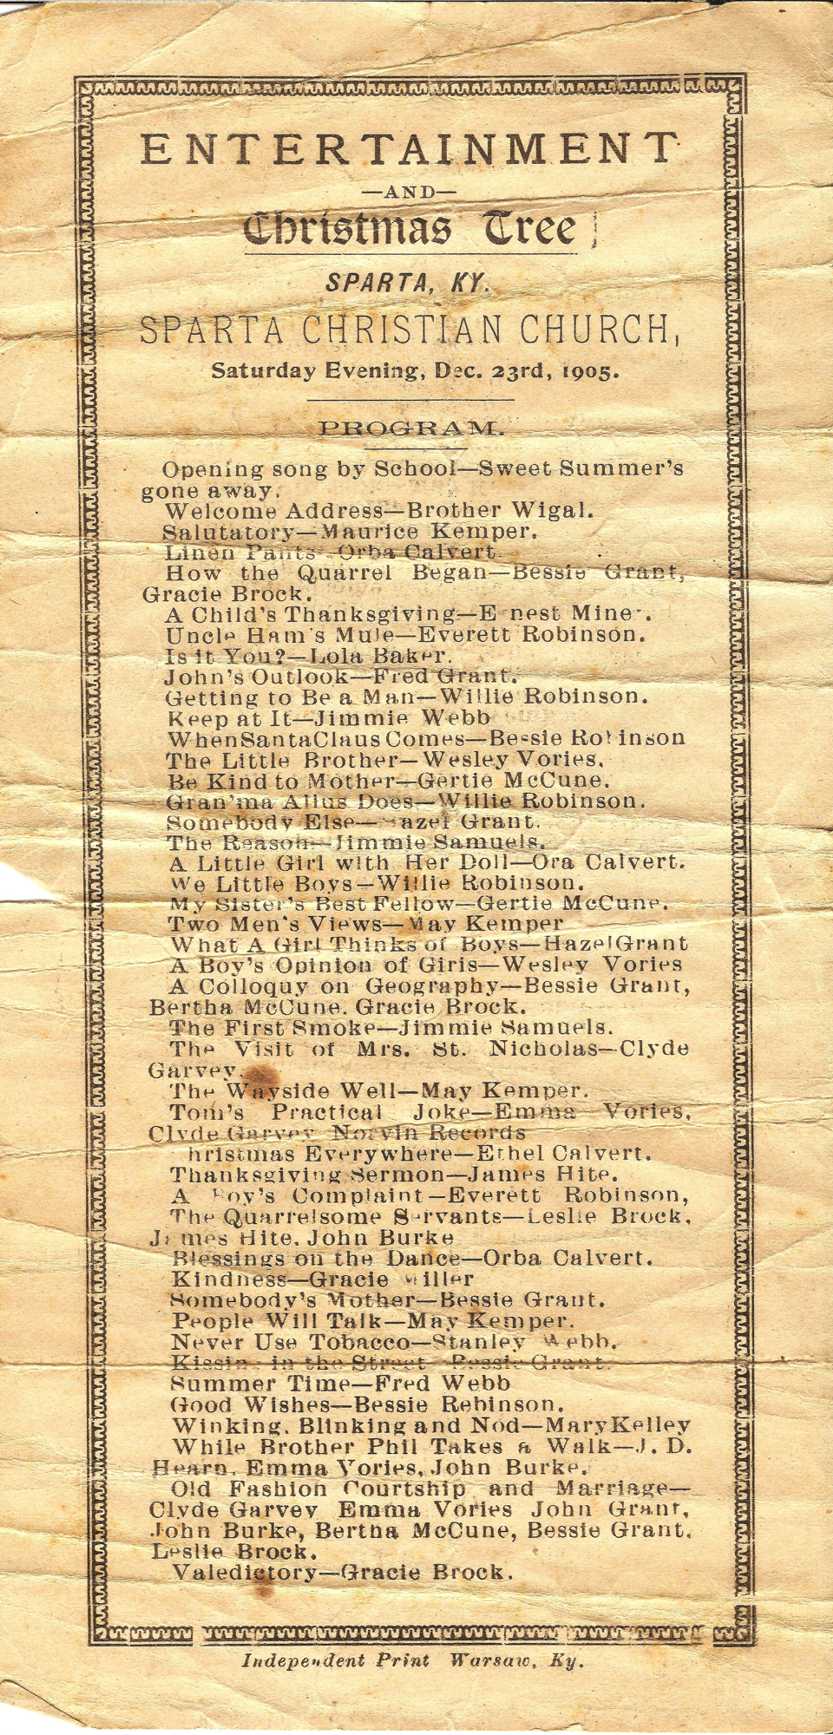 ENTERTAINMENT
—AND—
Christmas Tree
SPARTA, KY.
SPARTA CHRISTIAN CHURCH,
Saturday Evening, Dec. 23rd, 1905.
PROGRAM.
Opening song by School—Sweet Summer's
gone away.
Welcome Address—Brother Wigal.
Salutatory—Maurice Kemper.
Linen Pants—Orba Calvert.
How the Quarrel Began—Bessie Grant,
Gracie Brock.
A Child's Thanksgiving—Ernest Miner.
Uncle Ham's Mule—Everett Robinson.
Is it You?—Lola Baker.
John's Outlook—Fred Grant.
Getting to Be a Man—Willie Robinson.
Keep at It—Jimmie Webb
When Santa Claus Comes—Bessie Robinson
The Little Brother—Wesley Vories.
Be Kind to Mother—Gertie McCune.
Gran'ma Allus Does—Willie Robinson.
Somebody Else—Hazel Grant.
The Reason—Jimmie Samuels.
A Little Girl with Her Doll—Ora Calvert.
We Little Boys—Willie Robinson.
My Sister's Best Fellow—Gertie McCune.
Two Men's Views—May Kemper
What A Girl Thinks of Boys—Hazel Grant
A Boy's Opinion of Girls—Wesley Vories
A Colloquy on Geography—Bessie Grant,
Bertha McCune. Gracie Brock.
The First Smoke—Jimmie Samuels.
The Visit of Mrs. St. Nicholas—Clyde
Garvey.
The Wayside Well—May Kemper.
Tom's Practical Joke—Emma Vories,
Clyde Garvey Norvin Records
Christmas Everywhere—Ethel Calvert.
Thanksgiving Sermon—James Hite.
A Boy's Complaint—Everett Robinson,
The Quarrelsome Servants—Leslie Brock,
James Hite, John Burke
Blessings on the Dance—Orba Calvert.
Kindness—Gracie Miller
Somebody's Mother—Bessie Grant.
People Will Talk—May Kemper.
Never Use Tobacco—Stanley Webb.
Kissing in the Street—Bessie Grant.
Summer Time—Fred Webb
Good Wishes—Bessie Rebinson.
Winking, Blinking and Nod—Mary Kelley
While Brother Phil Takes a Walk—J. D.
Hearn, Emma Vories, John Burke.
Old Fashion Courtship and Marriage—
Clyde Garvey Emma Vories John Grant,
John Burke, Bertha McCune, Bessie Grant,
Leslie Brock.
Valedictory—Gracie Brock.
Independent Print Warsaw, Ky.